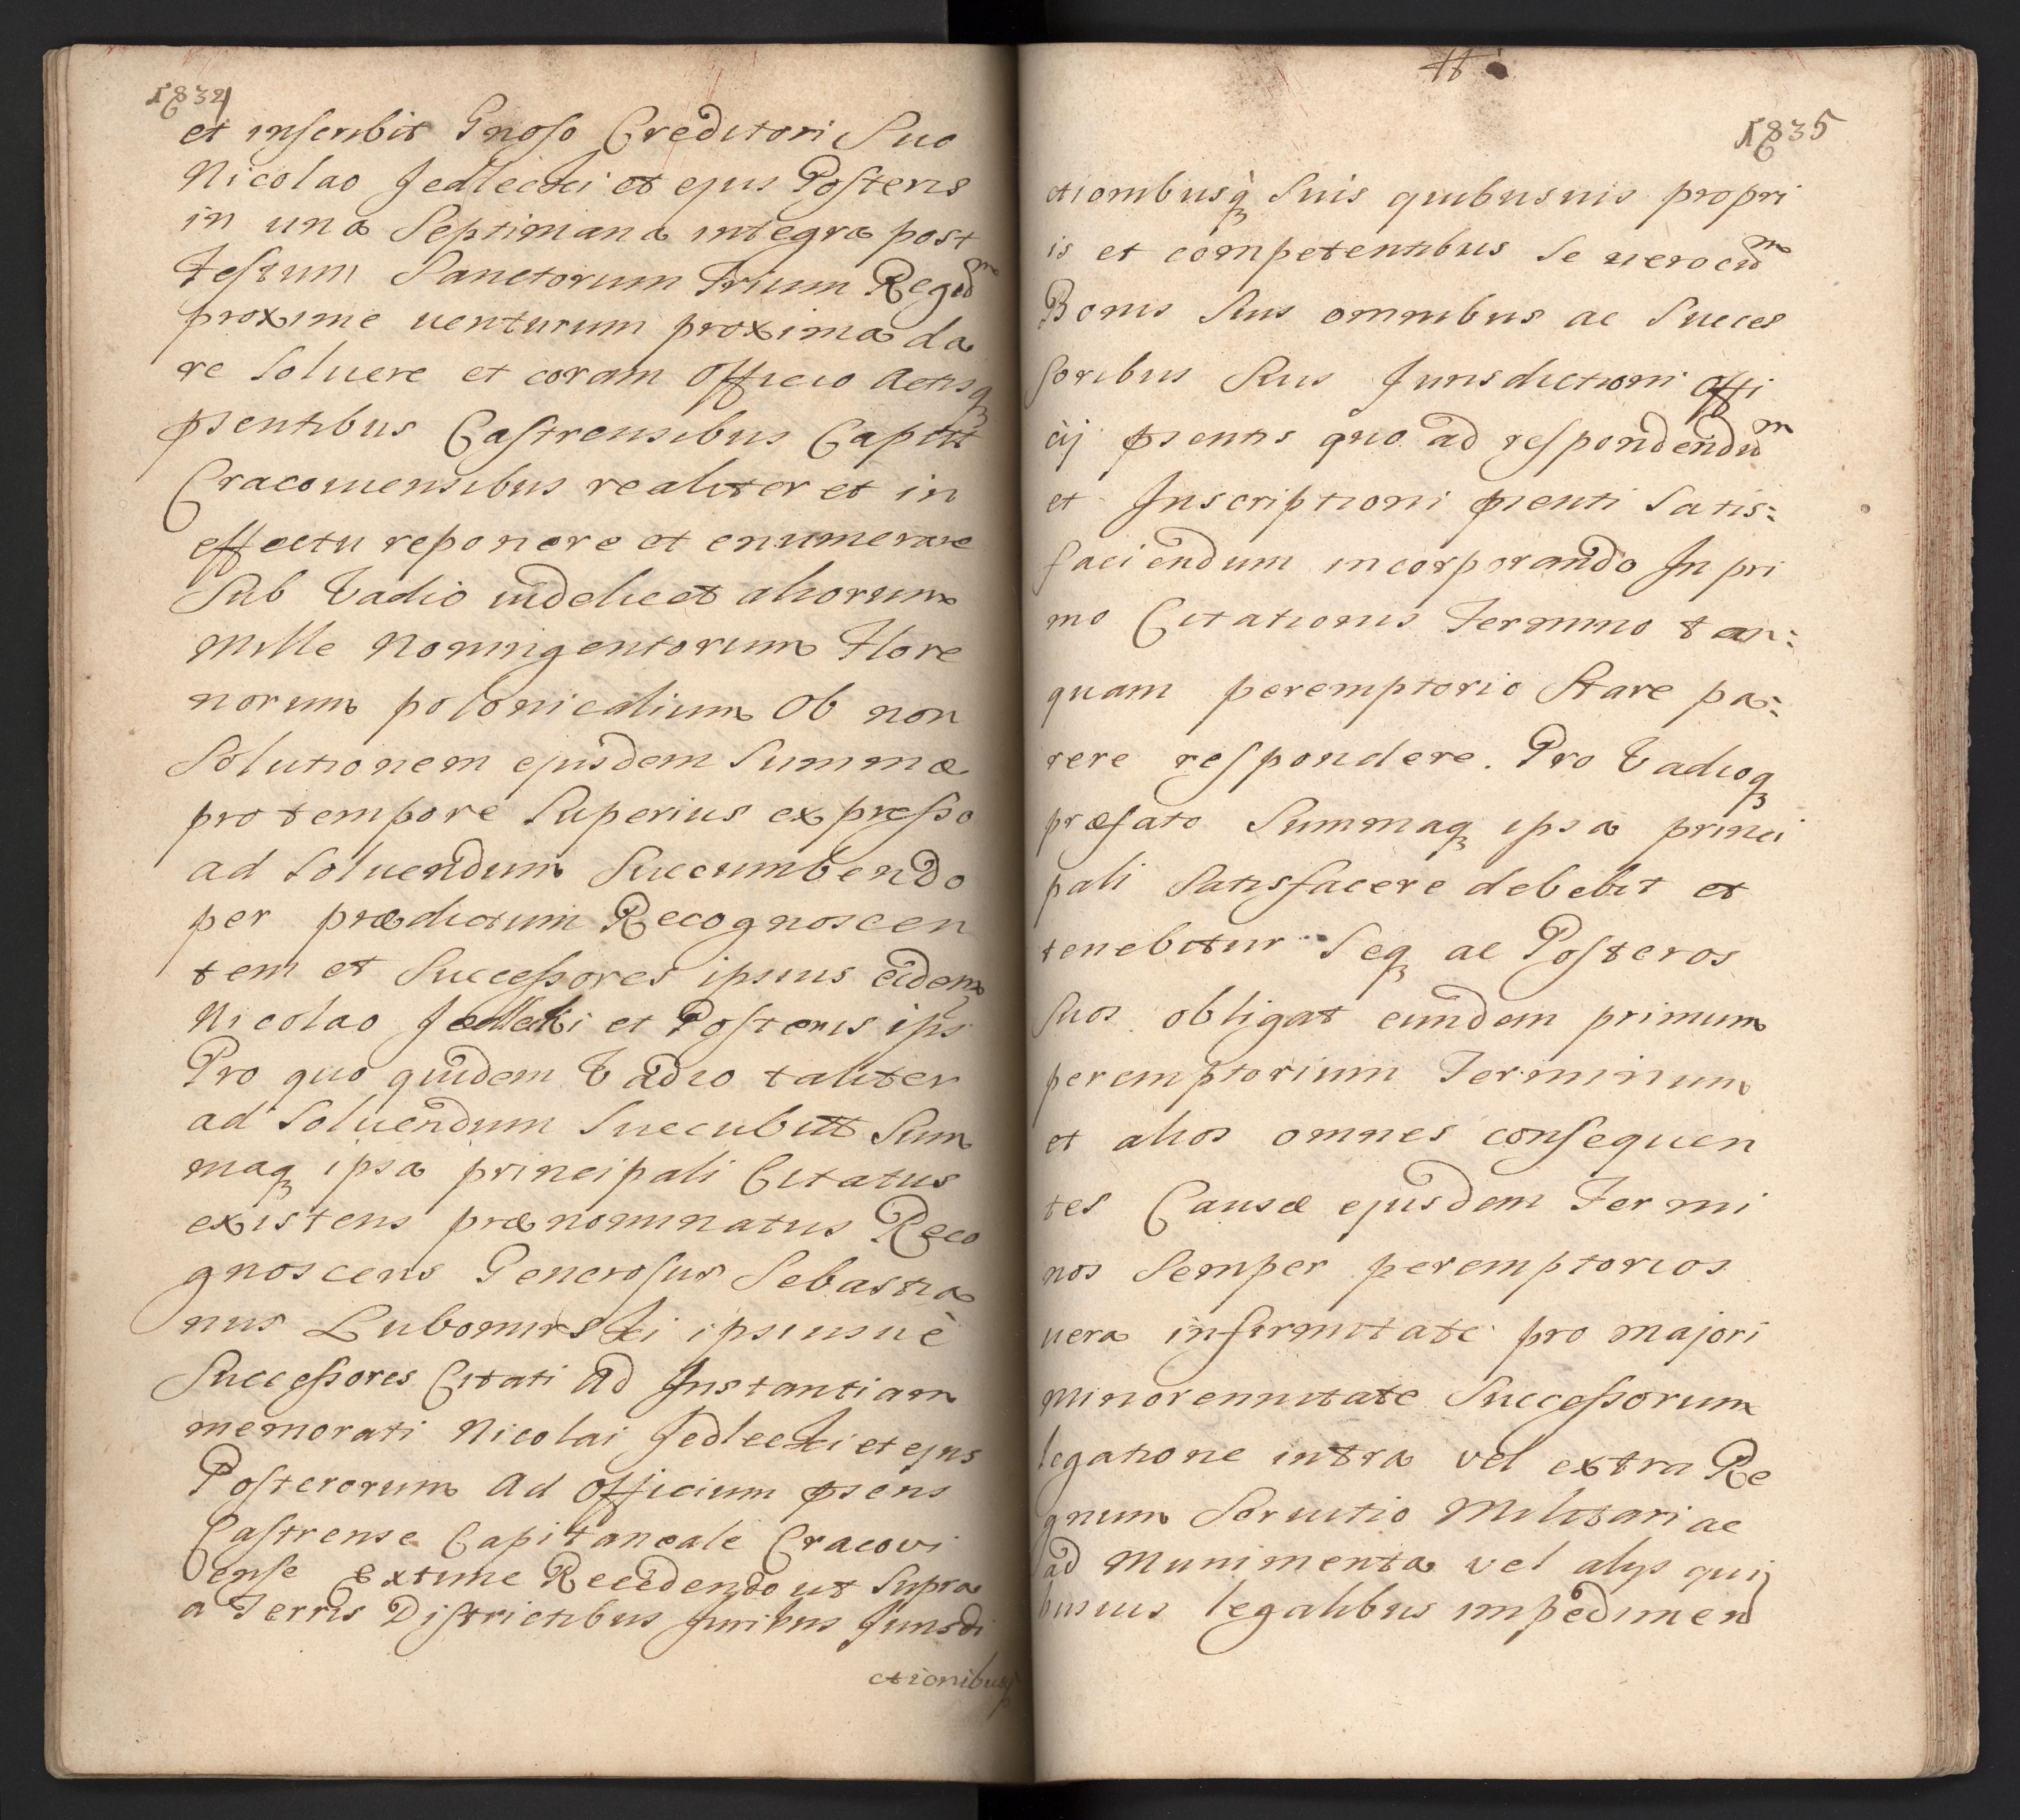 1834
et inscribit Gnoso Creditori Suo
Nicolao Jedlecki et ejus Posteris
in una Septimana integra post
Festum Sanctorum Trium Regum
proxime venturum proxima da
re Soluere et coram Officio Actisq
pñentibus Castrensibus Capitt
Cracouiensibus realiter et in
effectu reponere et enumerare
Sub Vadio uidelicet aliorum
Mille Noningentorum Flore
norum polonicalium Ob non
Solutionem ejusdem Summæ
pro tempore Superius expresso
ad Soluendum Succumbendo
per prædictum Recognoscen
tem et Successores ipsius eidem
Nicolao Jedlecki et Posteris ips
Pro quo quidem Vadio taliter
ad Soluendum Succubitt Sum
maq ipsa principali Citatus
existens prænominatus Reco
gnoscens Generosus Sebastia
nus Lubomirski ipsiusuè
Successores Citati Ad Instantiam
memorati Nicolai Jedlecki et ejus
Posterorum Ad Officium pñens
Castrense Capitaneale Cracovi
ense Extunc Recedendo ut Supra
a Terris Districtibus Juribus Jurisdi
ctionibusq
1835
ctionibusq Suis quibusuis propri
is et competentibus Se uero cum
Bonis Suis omnibus ac Succes
soribus Suis Jurisdictioni Offi
cij pñentis quo ad respondendum
et Inscriptioni pñenti Satis:
faciendum incorporando In pri
mo Citationis Termino tan:
quam peremptorio Stare pa:
rere respondere. Pro Vadioq
præfato Summaq ipsa princi
pali Satisfacere debebit et
tenebitur Seq ac Posteros
Suos obligat eundem primum
peremptorium Terminum
et alios omnes consequen
tes Causæ ejusdem Termi
nos Semper peremptorios
uera infirmitate pro majori
Minorennitate Successorum
legatione intra vel extra Re
gnum Seruitio Militari ac
ad Munimenta vel alijs qui
busuis legalibus impedimen